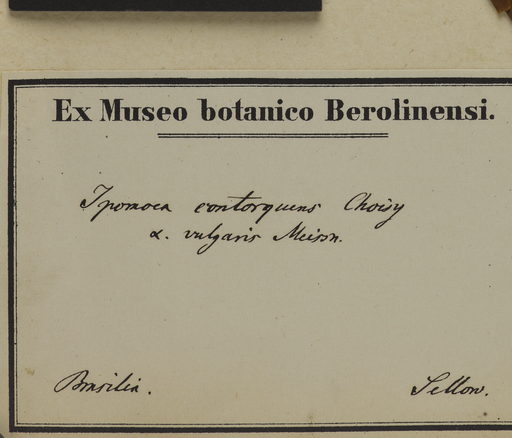 Ex Museo botanico Berolinensi.
Ipomoea contorquens Choisy
α. vulgaris Meissn.
Brasilia.
Sellow.